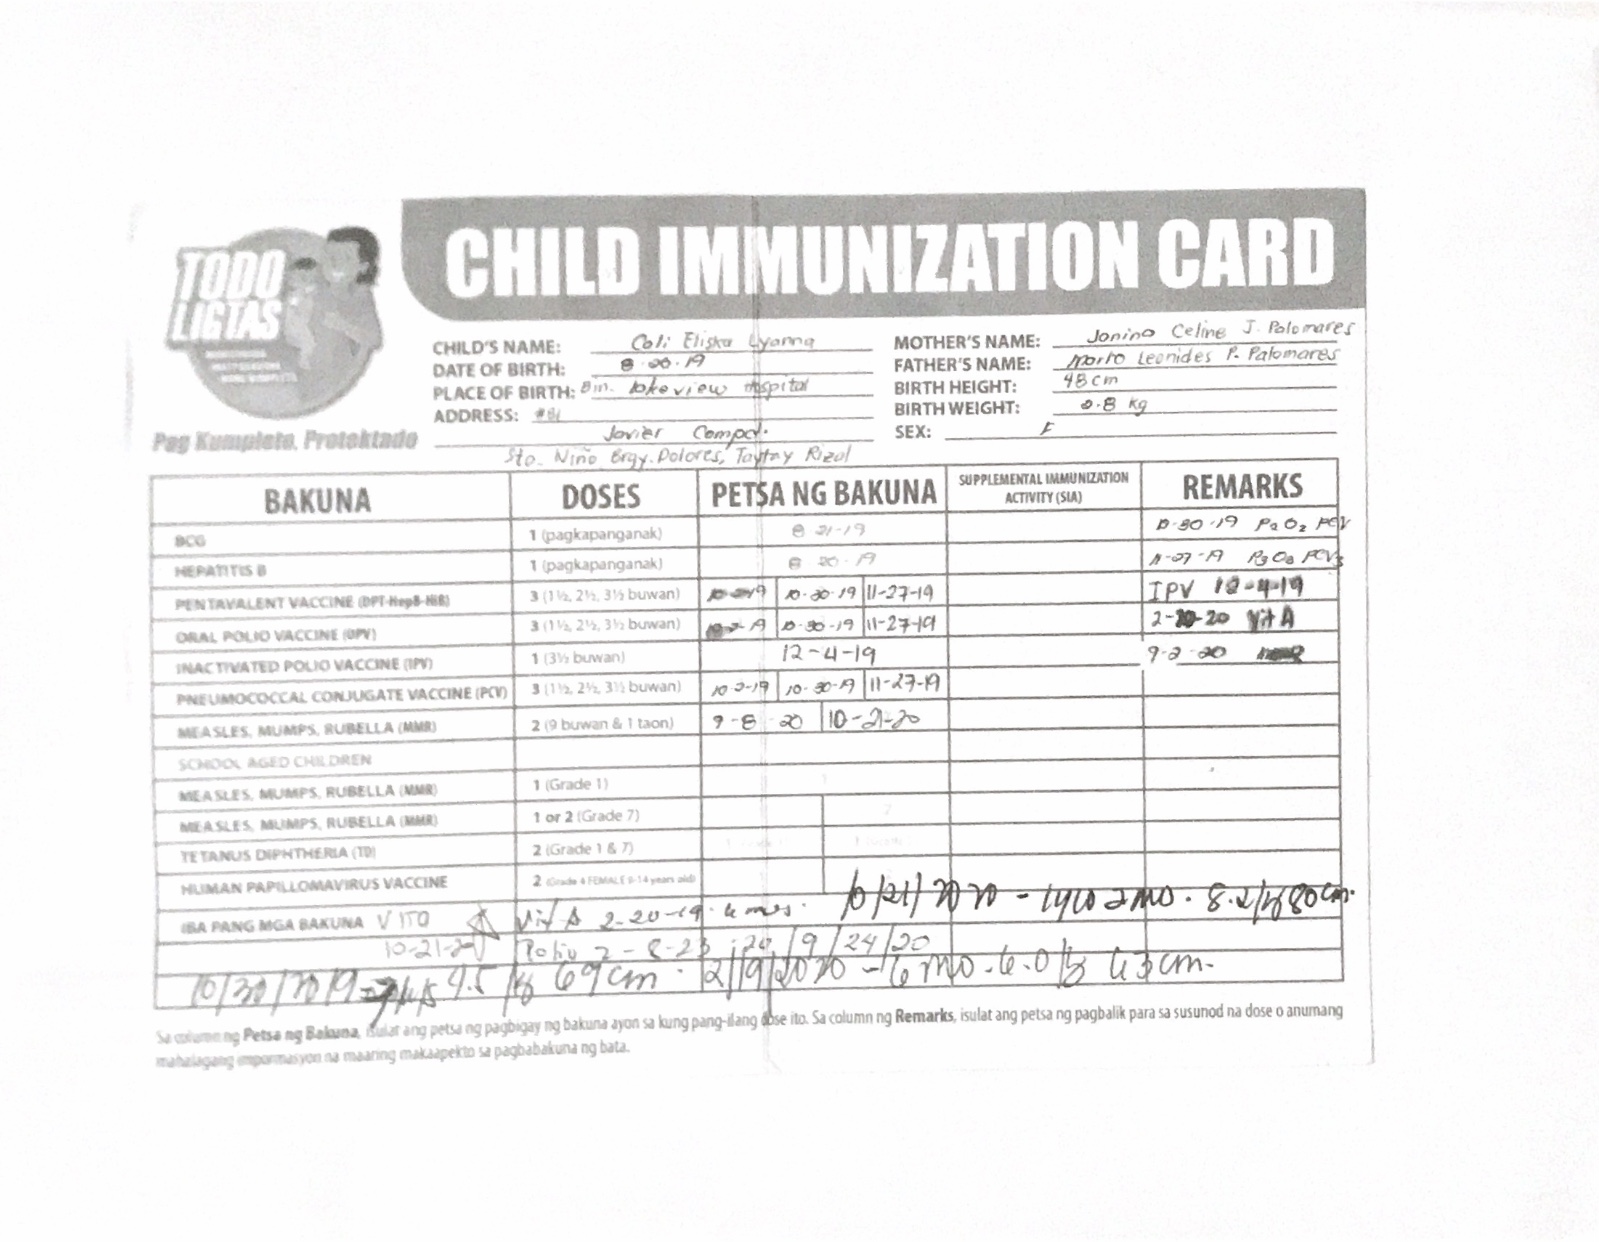 TODO
LIGTAS
CHILD IMMUNIZATION CARD
Pag Kumpleto, Protektado
CHILD'S NAME: Cali Eliska Lyanna
DATE OF BIRTH: 8-20-19
PLACE OF BIRTH: Bin. lakeview Hospital
ADDRESS:
Javier Compd.
Sto. Niño Brgy. Dolores, Taytay Rizal
MOTHER'S NAME: Janina Celine J. Palomares
FATHER'S NAME: Leonides P. Palomares
BIRTH HEIGHT: 48 cm
BIRTH WEIGHT: 2.8 kg
SEX: F
BAKUNA DOSES PETSA NG BAKUNA SUPPLEMENTAL IMMUNIZATION ACTIVITY (SIA) REMARKS
BCG 1 (pagkapanganak) 8 21-19 10-30-19 PCV
HEPATITIS B 1 (pagkapanganak) 8 20-19 11-27-19
PENTAVALENT VACCINE (DPT-HepB-HiB) 3 (1½, 2½, 3½ buwan) 10-2-19 10-30-19 11-27-19 IPV 12-4-19
ORAL POLIO VACCINE (OPV) 3 (1½, 2½, 3½ buwan) 10-2-19 10-30-19 11-27-19 Vit A
INACTIVATED POLIO VACCINE (IPV) 1 (3½ buwan) 12-4-19 9-2-20
PNEUMOCOCCAL CONJUGATE VACCINE (PCV) 3 (1½, 2½, 3½ buwan) 10-2-19 10-30-19 11-27-19
MEASLES, MUMPS, RUBELLA (MMR) 2 (9 buwan & 1 taon) 9-8-20 10-21-20
SCHOOL AGED CHILDREN
MEASLES, MUMPS, RUBELLA (MMR) 1 (Grade 1)
MEASLES, MUMPS, RUBELLA (MMR) 1 or 2 (Grade 7)
TETANUS DIPHTHERIA (TD) 2 (Grade 1 & 7)
HUMAN PAPILLOMAVIRUS VACCINE 2 (Grade 4 FEMALE 9-14 years old)
10/21/2020 - 80cm.
IBA PANG MGA BAKUNA Vit A 2-20-19
10-21-20 Polio 9/24/20
10/30/2019 69cm. 2/9/2020 - 6 mo. 6.0 63 cm.
Sa column ng Petsa ng Bakuna, isulat ang petsa ng pagbigay ng bakuna ayon sa kung pang-ilang dose ito. Sa column ng Remarks, isulat ang petsa ng pagbalik para sa susunod na dose o anumang
mahalagang impormasyon na maaring makaapekto sa pagbabakuna ng bata.